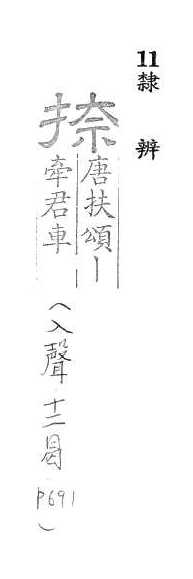 11隸辨
捺
唐扶頌丨
牽君車
(入聲十二曷
P691)